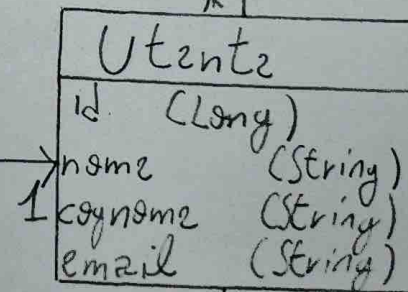 Utente
id (Long)
nome (String)
1 cognome (String)
email (String)